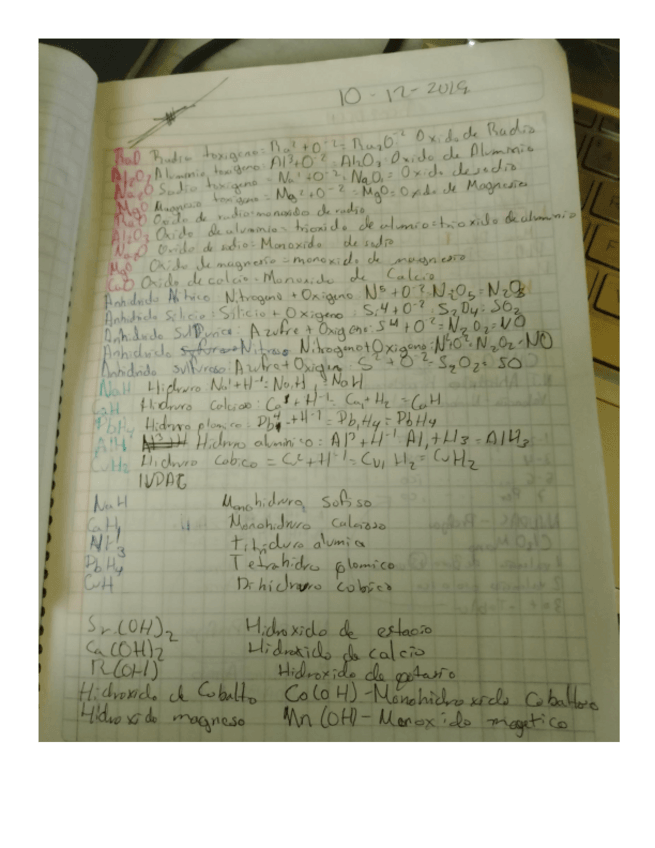 10-12-2019
RaO Radio + oxigeno: Ra² + O-² = Ra2O-² Oxido de Radio
Al2O3 Aluminio, + oxigeno: Al³+O-² = Al2O3. Oxido de Aluminio
Na2O Sodio + oxigeno = Na¹ + O-² = Na2O1 = Oxido de sodio
MgO Magnesio + oxigeno = Mg² + O-² = MgO = Oxido de Magnesio
RaO Oxido de radio = monoxido de radio
Al2O3 Oxido de aluminio = trioxido de aluminio = trioxido de aluminio
Na2O Oxido de sodio = Monoxido de sodio
MgO Oxido de magnesio = monoxido de magnesio
CaO Oxido de calcio = Monoxido de Calcio
Anhidrido Nitrico: Nitrogeno + Oxigeno: N5 + O-² N2O5 = N2O5
Anhidrido Silicio: Silicio + Oxigeno: Si4 + O-²: S2O4 = SO2
Anhidrido Sulfurico: Azufre + Oxigeno: S4 + O² = N2O2 = NO
Anhidrido Nitroso Nitrogeno + Oxigeno: N2O2 = NO
Anhidrido sulfuroso: Azufre + Oxigeno: S² + O-² S2O2 = SO
NaH Hidruro Na¹ + H-¹ = Na1H1 NaH
CaH Hidruro calcioso: Ca + H-¹ = Ca1 + H2 = CaH
PbH4 Hidruro plomico: Pb4 + H-¹ = Pb1H4 = PbH4
AlH Hidruro aluminico: Al³ + H-¹ Al1 + H3 = AlH3
CuH2 Hidruro Cobico = Cu² + H-¹ = Cu1 H2 = CuH2
IUPAC
NaH Monohidruro Sodiso
CaH Monohidruro calcioso
AlH3 Trihiduro alumico
PbH4 Tetrahidro plomico
CuH Dihidruro cobico
Sr(OH)2 Hidroxido de estacio
Ca(OH)2 Hidroxido de calcio
K(OH) Hidroxido de potasio
Hidroxido de Cobalto Co(OH) - Monohidroxido Cobaltoso
Hidroxido magneso Mn(OH) - Monoxido magetico